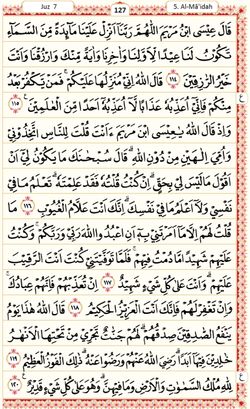 Juz 7 127 5. Al-Mâ'idah
قَالَ عِيسَى ابْنُ مَرْيَمَ اللّٰهُمَّ رَبَّنَا أَنْزِلْ عَلَيْنَا مَآئِدَةً مِّنَ السَّمَآءِ
تَكُونُ لَنَا عِيدًا لِّأَوَّلِنَا وَاٰخِرِنَا وَاٰيَةً مِّنْكَ وَارْزُقْنَا وَأَنْتَ
خَيْرُ الرّٰزِقِينَ ١١٤ قَالَ اللّٰهُ إِنِّي مُنَزِّلُهَا عَلَيْكُمْ فَمَنْ يَّكْفُرْ بَعْدُ
مِنْكُمْ فَإِنِّيٓ أُعَذِّبُهُ عَذَابًا لَّآ أُعَذِّبُهُٓ أَحَدًا مِّنَ الْعٰلَمِينَ ١١٥
وَإِذْ قَالَ اللّٰهُ يٰعِيسَى ابْنَ مَرْيَمَ ءَأَنْتَ قُلْتَ لِلنَّاسِ اتَّخِذُونِي
وَأُمِّيَ إِلٰهَيْنِ مِنْ دُونِ اللّٰهِ قَالَ سُبْحٰنَكَ مَا يَكُونُ لِيٓ أَنْ
أَقُولَ مَا لَيْسَ لِي بِحَقٍّ إِنْ كُنْتُ قُلْتُهُ فَقَدْ عَلِمْتَهُ تَعْلَمُ مَا فِي
نَفْسِي وَلَآ أَعْلَمُ مَا فِي نَفْسِكَ إِنَّكَ أَنْتَ عَلَّامُ الْغُيُوبِ ١١٦ مَا
قُلْتُ لَهُمْ إِلَّا مَآ أَمَرْتَنِي بِهِٓ أَنِ اعْبُدُوا اللّٰهَ رَبِّي وَرَبَّكُمْ وَكُنْتُ
عَلَيْهِمْ شَهِيدًا مَّا دُمْتُ فِيهِمْ فَلَمَّا تَوَفَّيْتَنِي كُنْتَ أَنْتَ الرَّقِيبَ
عَلَيْهِمْ وَأَنْتَ عَلٰى كُلِّ شَيْءٍ شَهِيدٌ ١١٧ إِنْ تُعَذِّبْهُمْ فَإِنَّهُمْ عِبَادُكَ
وَإِنْ تَغْفِرْ لَهُمْ فَإِنَّكَ أَنْتَ الْعَزِيزُ الْحَكِيمُ ١١٨ قَالَ اللّٰهُ هٰذَا يَوْمُ
يَنْفَعُ الصّٰدِقِينَ صِدْقُهُمْ لَهُمْ جَنّٰتٌ تَجْرِي مِنْ تَحْتِهَا الْأَنْهٰرُ
خٰلِدِينَ فِيهَآ أَبَدًا رَّضِيَ اللّٰهُ عَنْهُمْ وَرَضُوا عَنْهُ ذٰلِكَ الْفَوْزُ الْعَظِيمُ ١١٩
لِلّٰهِ مُلْكُ السَّمٰوٰتِ وَالْأَرْضِ وَمَا فِيهِنَّ وَهُوَ عَلٰى كُلِّ شَيْءٍ قَدِيرٌ ١٢٠